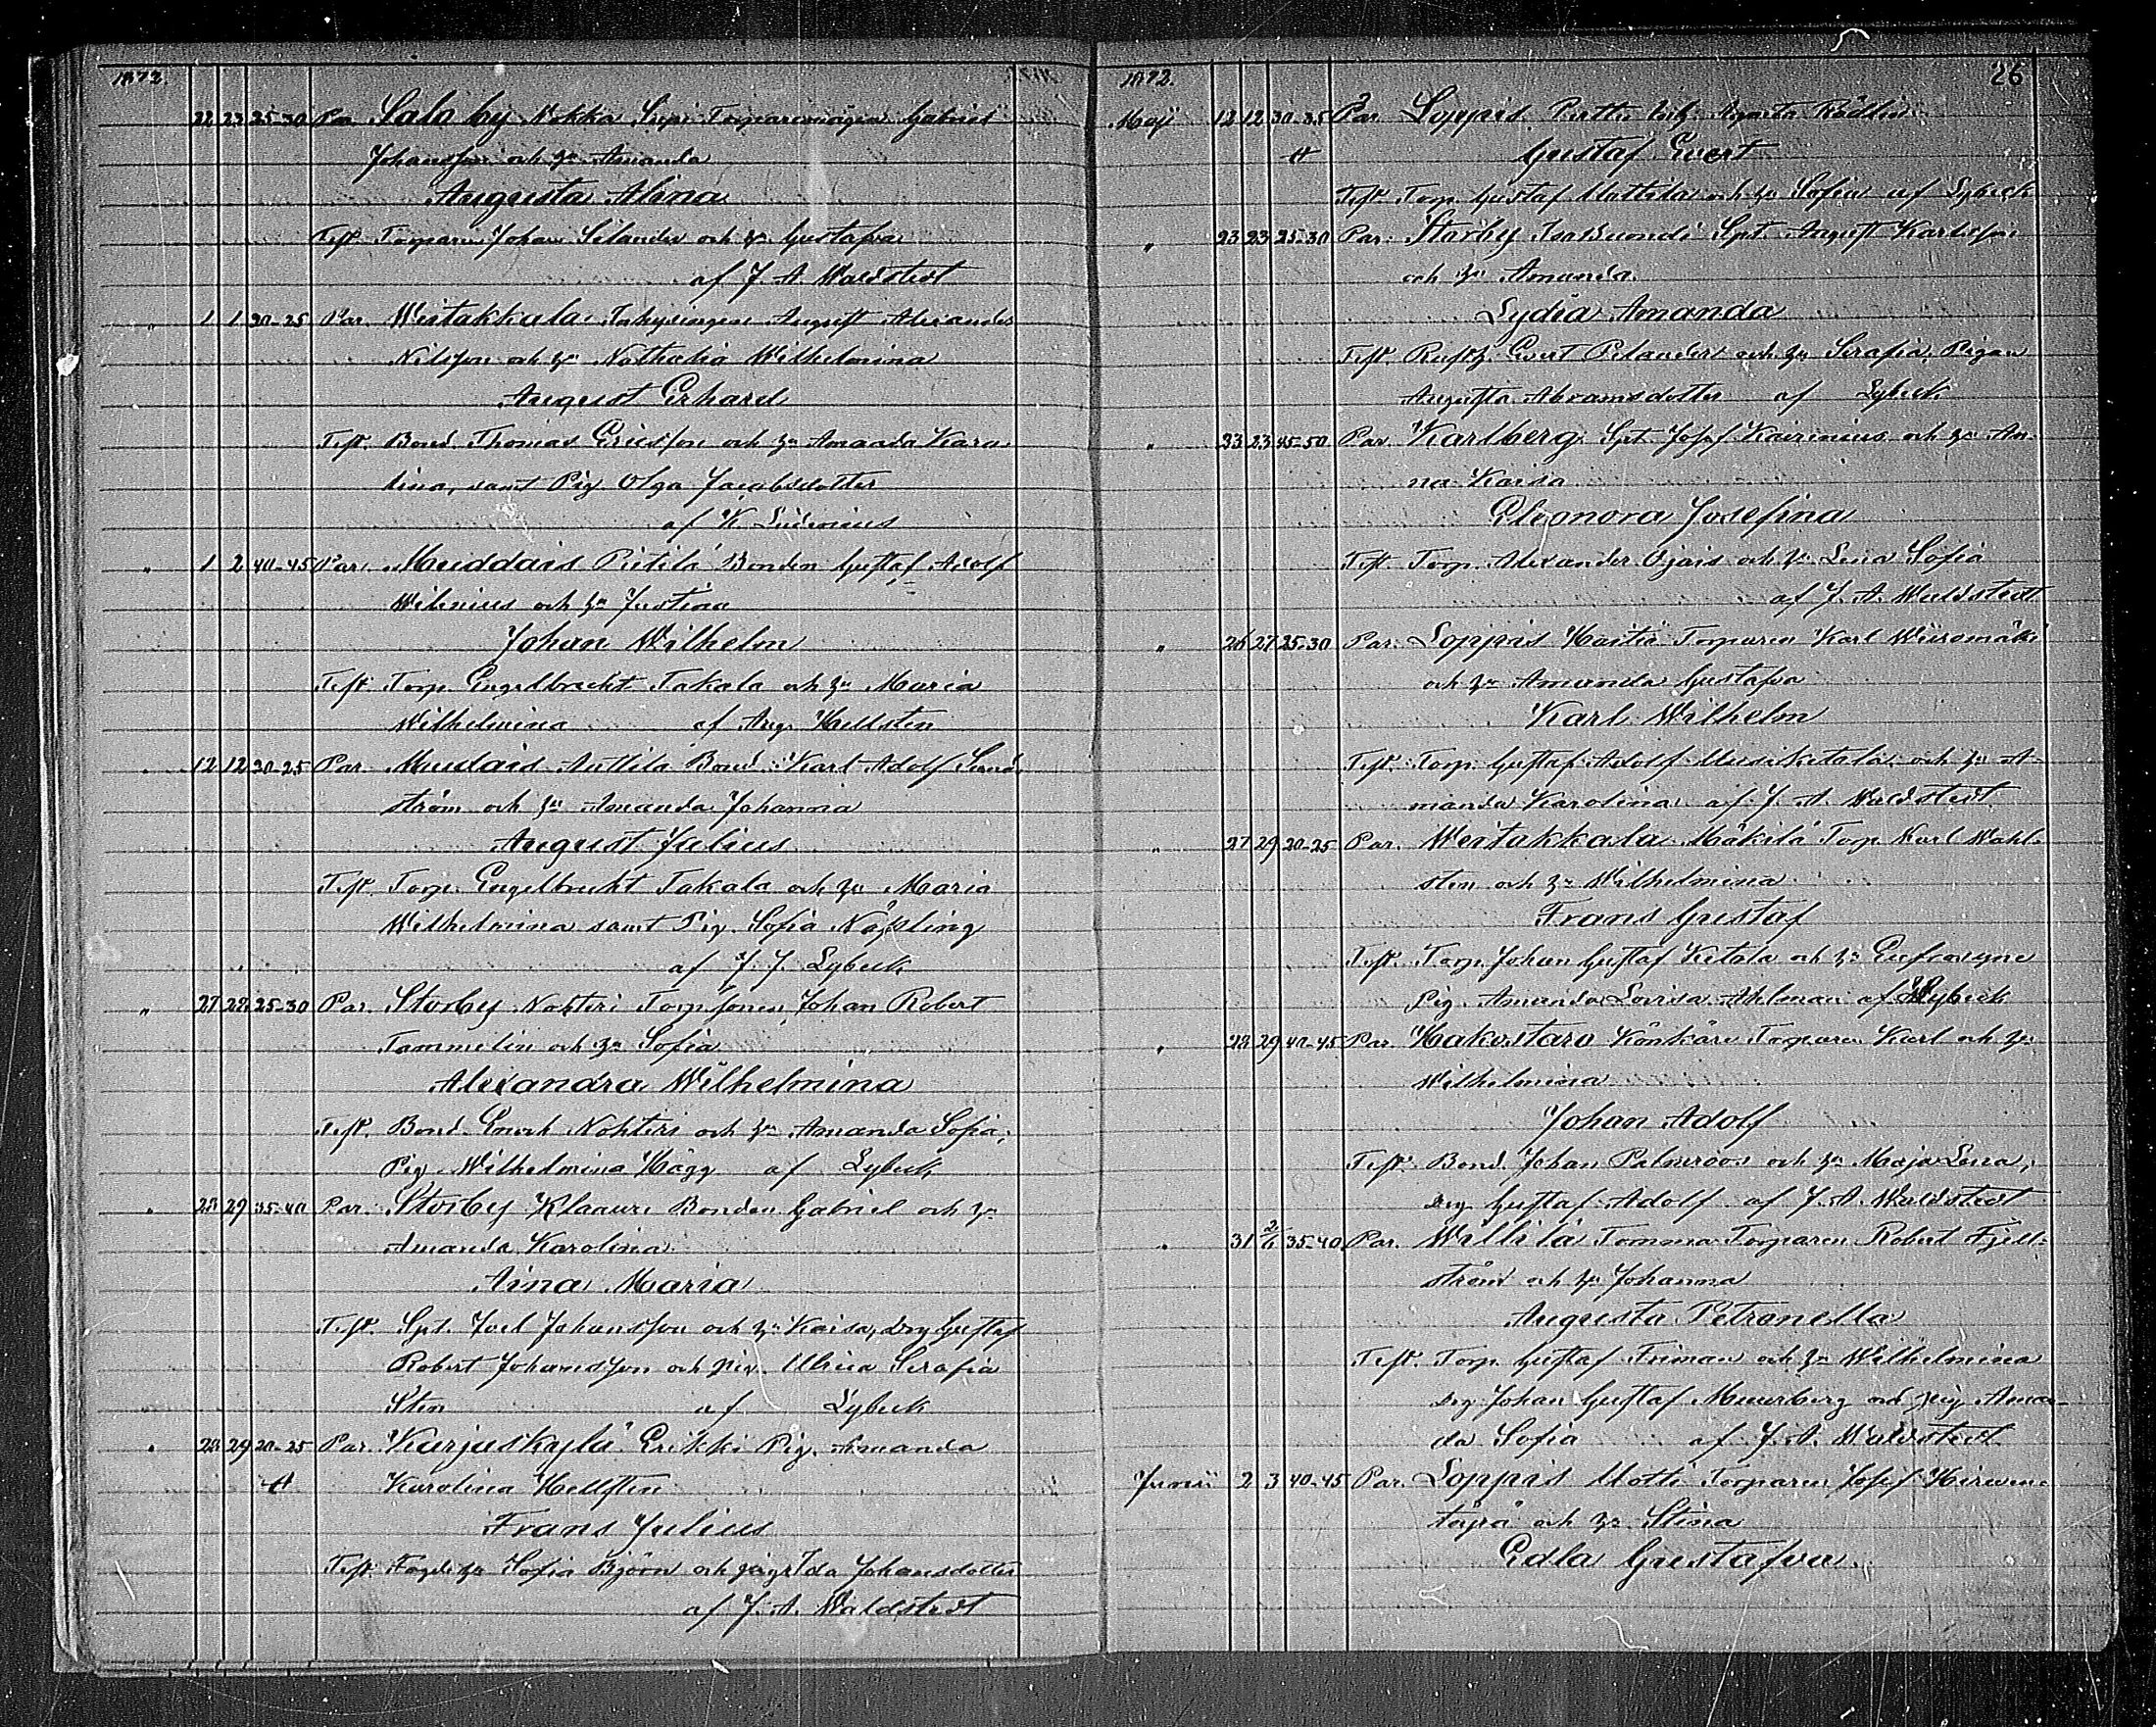 1872.
22 23 25-30 Par. Salo by Nokka Torparemågen Gabriel
Johansson och h:u Amanda
Augusta Alina
Test. Torparen Johan Selander och h:u Gustafva
af J. A. Waldstedt
" 1 1 20-25 Par. Wiitakkala Inhysingen August Alexander
Nilsson och h:u Nathalia Wilhelmina
August Erhard
Test. Bond. Thomas Ericsson och h:u Amanda Karo
lina, samt Pig. Olga Jacobsdotter
af K.
" 1 2 40-45 Par. Muddais Pietilä Bonden Gustaf Adolf
Wilenius och h:u Justina
Johan Wilhelm
Test. Torp. Engelbrecht Takala och h:u Maria
Wilhelmina af Aug. Hellsten
" 12 12 20-25 Par. Muddais Anttila Bond. Karl Adolf Sund-
ström och h:u Amanda Johanna
August Julius
Test. Torp. Engelbrecht Takala och h:u Maria
Wilhelmina samt Pig. Sofia Nässling
af J. J. Lybeck
" 27 28 25-30 Par. Storby Nohteri Torpsonen Johan Robert
Tammelin och h:u Sofia
Alexandra Wilhelmina
Test. Bond. Enoch Nohteri och h:u Amanda Sofia,
Pig. Wilhelmina Hägg af Lybeck
" 28 29 35-40 Par. Storby Klaavu Bonden Gabriel och h:u
Amanda Karolina
Aina Maria
Test. Spt. Joel Johansson och h:u Kaisa, Drg Gustaf
Robert Johansson och Pig. Ulrica Serafia
Sten af Lybeck
" 28 29 20-25 Par. Karjaskylä Erikki Pig. Amanda
Karolina Hellsten
Frans Julius
Test. h:u Sofia Björn och pig. Ida Johansdotter
af J. A. Waldstedt
1872. 26
Maji 12 12 30-35 Par. Loppis Perttu Agneta Rödlin
Gustaf Evert
Test. Torp. Gustaf Mattila och h:u Sofia af Lybeck
" 23 23 25-30 Par. Storby Spt. August Karlsson
och h:u Amanda
Lydia Amanda
Test. Rusth. Evert Pelander och h:u Serafia, Pigan
Augusta Abramsdotter af Lybeck
" 23 23 45-50 Par. Karlberg Spt. Josef Kairinius och h:u An-
na Kaisa
Eleonora Josefina
Test. Torp. Alexander Ojais och h:u Lena Sofia
af J. A. Waldstedt
" 26 27 25-30 Par. Loppis Torparen Karl Wiiremäki
och h:u Amanda Gustafva
Karl Wilhelm
Test. Torp. Gustaf Adolf Uusiketola och h:u A-
manda Karolina af J. A. Waldstedt
" 27 29 20-25 Par. Wiitakkala Mäkilä Torp. Karl Wahl-
sten och h:u Wilhelmina
Frans Gustaf
Test. Torp. Johan Gustaf Ketola och h:u Eufrosyne
Pig. Amanda Lovisa Ahlman af Lybeck
" 28 29 40-45 Par. Hakostaro Könkäre Torparen Karl och h:u
Wilhelmina
Johan Adolf
Test. Bond. Johan Palmroos och h:u Maja Lena,
Drg Gustaf Adolf af J. A. Waldstedt
" 31 2/6 35-40 Par. Willilä Tomma Torparen Robert Fjell-
ström och h:u Johanna
Augusta Petronella
Test. Torp. Gustaf Friman och h:u Wilhelmina
Drg Johan Gustaf Murberg och pig Aman-
da Sofia af J. A. Waldstedt
Junii 2 3 40-45 Par. Loppis Uotti Torparen Josef Hirwen-
och h:u Stina
Edla Gustafva